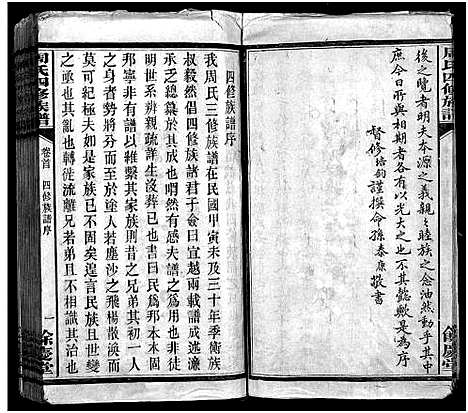 周氏四修族譜
後之覽者明夫本源之義親親睦族之念油然動乎其中
庶今日所與相期者各有以光大之也不其懿歟
督修培鈞謹撰命孫泰康敬書
餘慶堂
四修族譜序
我周氏三修族譜在民國甲寅未及三十年季衛術
成諸先生倡修四修族譜僉曰宜越兩載譜成述濂
於其成也喟然有感夫譜之為用也非徒
明世系辨親疏詳生沒而已書曰民為邦本本固
邦寧非有以維繫其家族則昔之兄弟其初一人
之身者勢將分而千萬如塵沙之飛楊散渙而
無有紀極夫如是家族已不固矣遑言民族且世變
之亟也其亂也轉徙流離兄若弟且相失其治也
周氏四修族譜
卷首
四修族譜序
一
餘慶堂